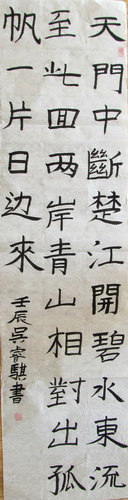 天門中斷楚江開碧水東流
至此回兩岸青山相對出孤
帆一片日边來
壬辰吴睿騏書